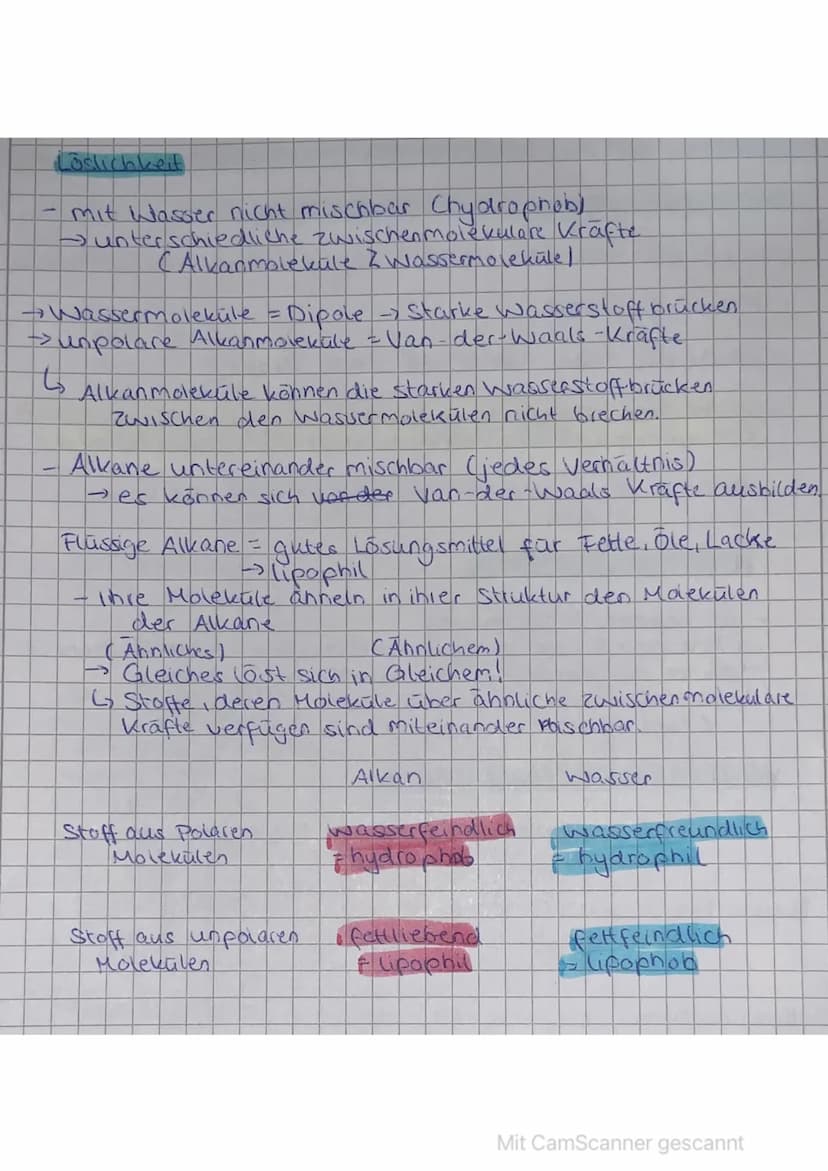 Löslichkeit
- mit Wasser nicht mischbar (hydrophob)
→ unterschiedliche zwischenmolekulare Kräfte
(Alkanmoleküle & Wassermoleküle)
→ Wassermoleküle = Dipole → Starke Wasserstoffbrücken
→ unpolare Alkanmoleküle = Van-der-Waals-Kräfte
↳ Alkanmoleküle können die starken Wasserstoffbrücken
zwischen den Wassermolekülen nicht brechen.
- Alkane untereinander mischbar (jedes Verhältnis)
→ es können sich van-der-Waals Kräfte ausbilden
Flüssige Alkane = gutes Lösungsmittel für Fette, Öle, Lacke
→ lipophil
- Ihre Moleküle ähneln in ihrer Struktur den Molekülen
der Alkane
(Ähnliches) (Ähnlichem)
→ Gleiches löst sich in Gleichem!
↳ Stoffe, deren Moleküle über ähnliche zwischenmolekulare
Kräfte verfügen sind miteinander mischbar.
Alkan Wasser
Stoff aus Polaren wasserfeindlich wasserfreundlich
Molekülen = hydrophob = hydrophil
Stoff aus unpolaren fettliebend fettfeindlich
Molekülen = lipophil = lipophob
Mit CamScanner gescannt